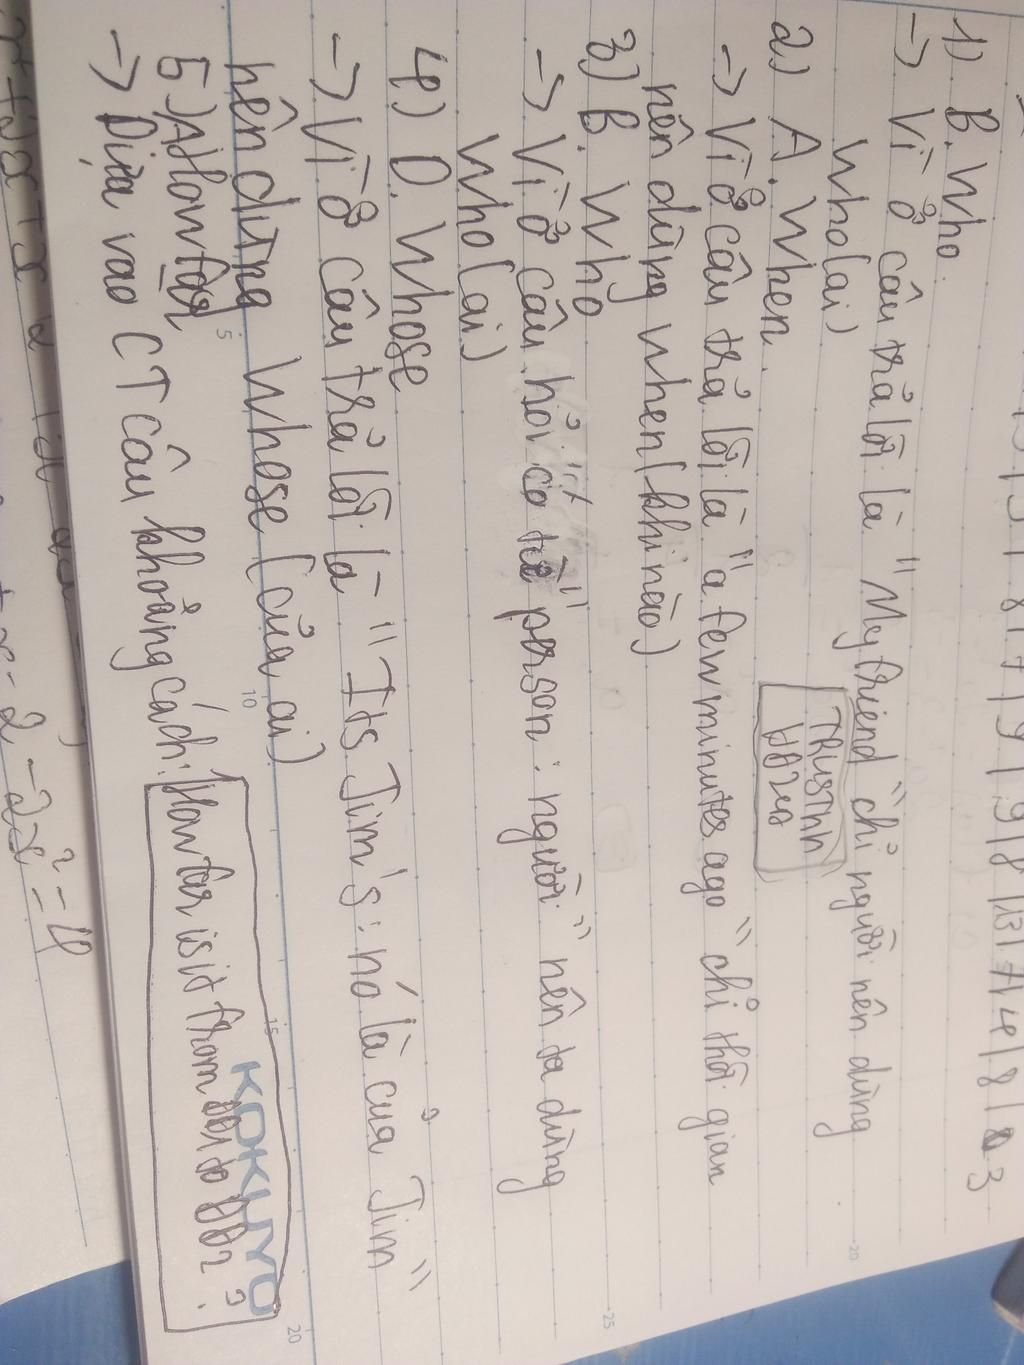 1). B. Who.
-> Vì ở câu trả lời là "My friend" chỉ người nên dùng
Who(ai)
TRUSTHH
2) A. When.
-> Vì ở câu trả lời là "a few minutes ago" chỉ thời gian
nên dùng When(khi nào)
3) B. Who
-> Vì ở câu hỏi có từ "person: người" nên ta dùng
Who(ai)
4) D. Whose
-> Vì ở câu trả lời là "Its Jim's: nó là của Jim"
nên dùng Whose (của ai)
5) A. How far
-> Dựa vao CT câu khoảng cách: How far is it from ĐĐ1 to ĐĐ2?
KOKUYO
5
10
15
20
20
25